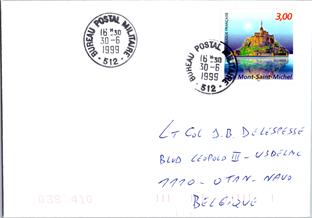 BUREAU POSTAL MILITAIRE
16 H 30
30-6
1999
• 512 •
BUREAU POSTAL MILITAIRE
16 H 30
30-6
1999
• 512 •
3,00
Mont-Saint-Michel
Lt Col J.B. DELESPESSE
BLVD LEOPOLD III -
1110 - OTAN - NAVO
BELGIQUE
038 410